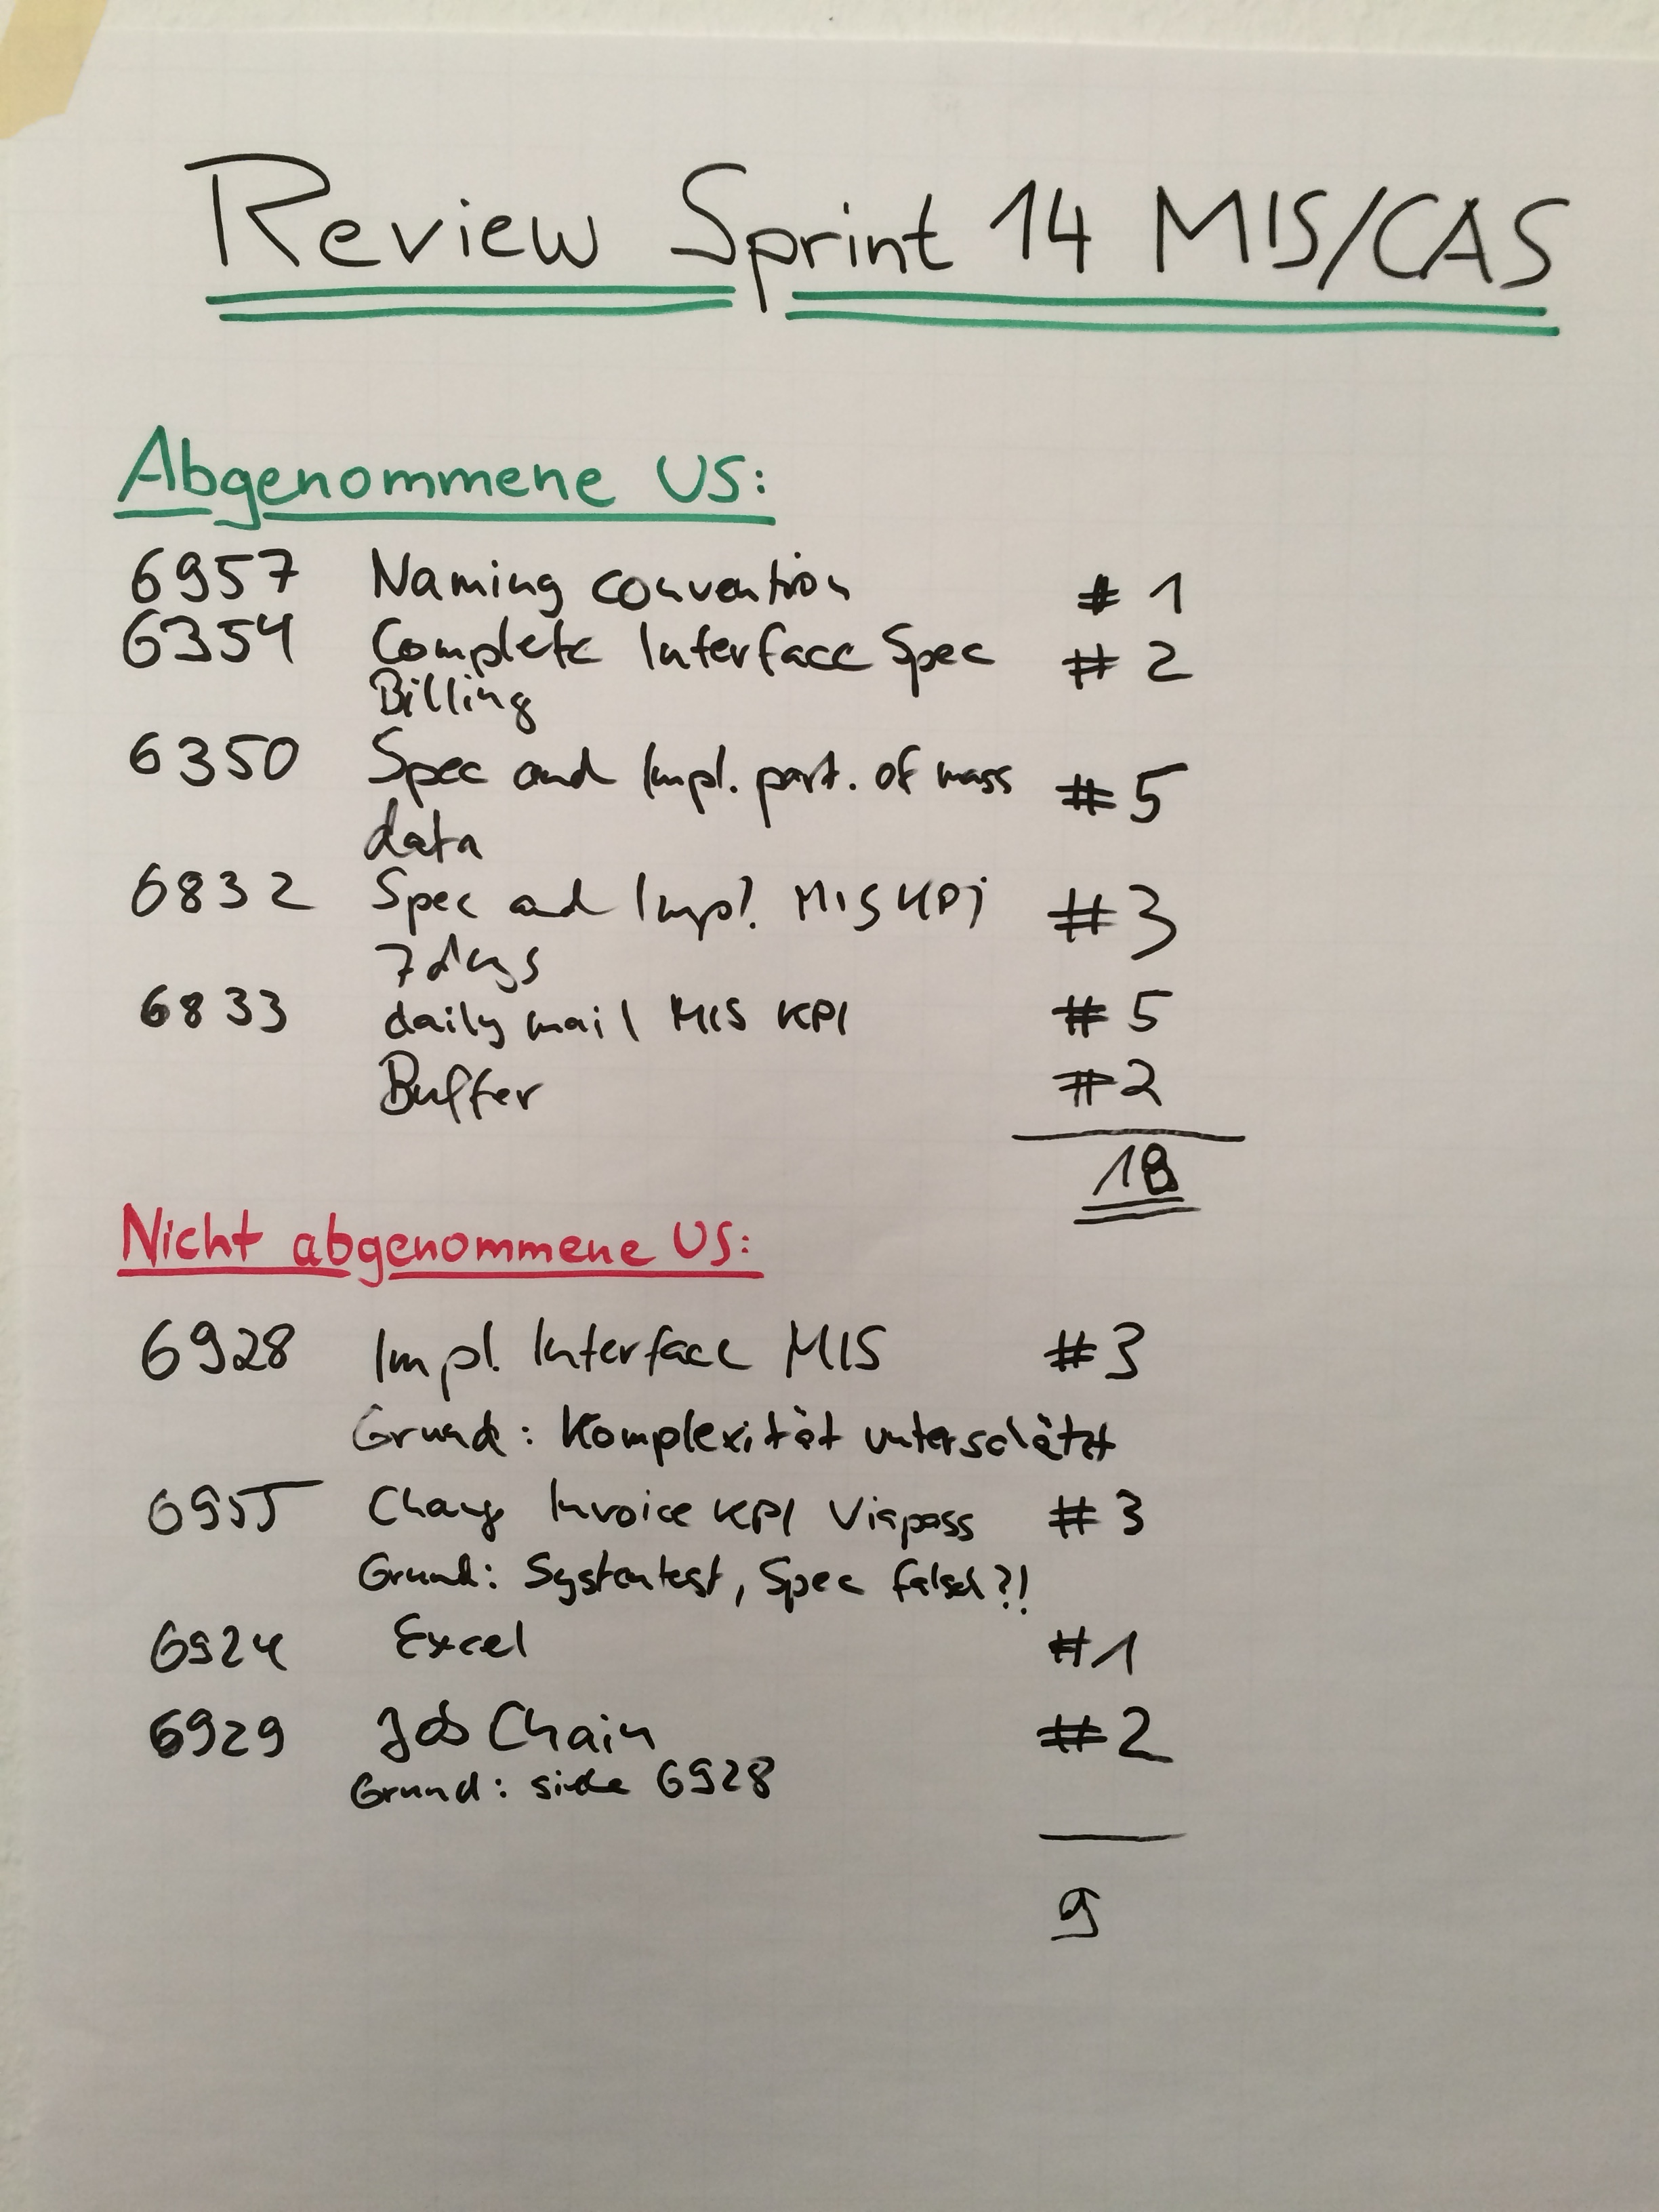 Review Sprint 14 MIS/CAS
Abgenommene US:
6957 Naming convention # 1
6354 Complete Interface Spec # 2
Billing
6350 Spec and Impl. part. of mass # 5
data
6832 Spec and Impl. MIS KPI # 3
7 days
6833 daily mail MIS KPI # 5
Buffer # 2
18
Nicht abgenommene US:
6928 Impl. Interface MIS # 3
Grund: Komplexität unterschätzt
6955 Change Invoice KPI Viapass # 3
Grund: Systemtest, Spec falsch?!
6924 Excel # 1
6929 Job Chain # 2
Grund: siehe 6928
9